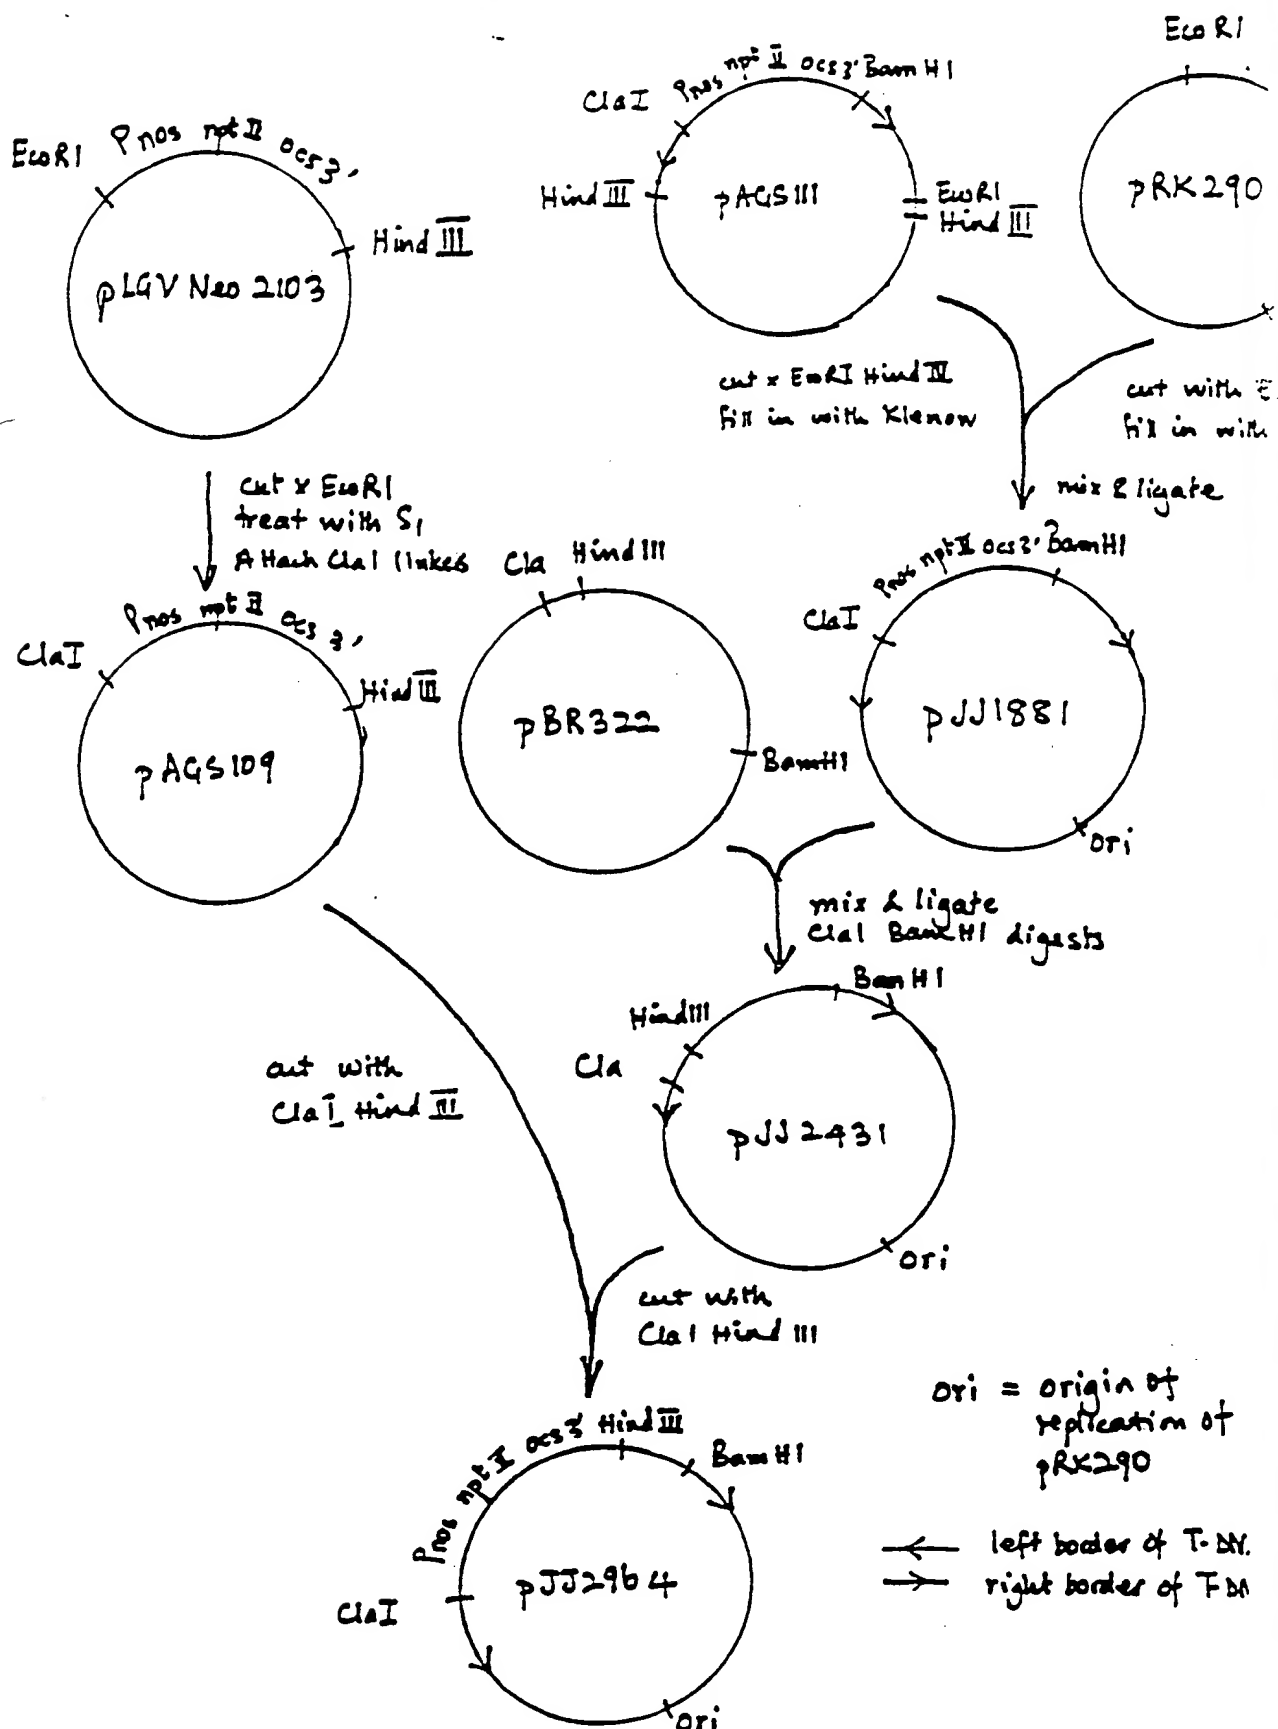 EcoRI
Pnos npt II ocs 3'
EcoRI
Hind III
pLGV Neo 2103
Pnos npt II ocs 3' BamHI
ClaI
Hind III
pAGS111
EcoRI
Hind III
pRK290
cut x EcoRI Hind III
fill in with Klenow
cut with E
fill in with
mix & ligate
cut x EcoRI
treat with S1
Attach ClaI linkers
Pnos npt II ocs 3'
ClaI
Hind III
pAGS109
Cla Hind III
pBR322
BamHI
Pnos npt II ocs 3' BamHI
ClaI
pJJ1881
ori
mix & ligate
ClaI BamHI digests
BamHI
Hind III
Cla
pJJ2431
ori
cut with
ClaI Hind III
cut with
ClaI Hind III
Pnos npt II ocs 3' Hind III
BamHI
pJJ2964
ClaI
ori
ori = origin of
replication of
pRK290
left border of T-DN
right border of T-DN